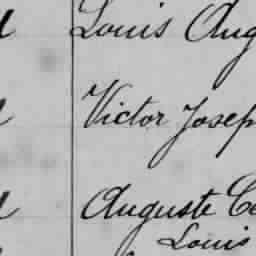 Louis Aug
Victor Josep
Auguste Ce
Louis